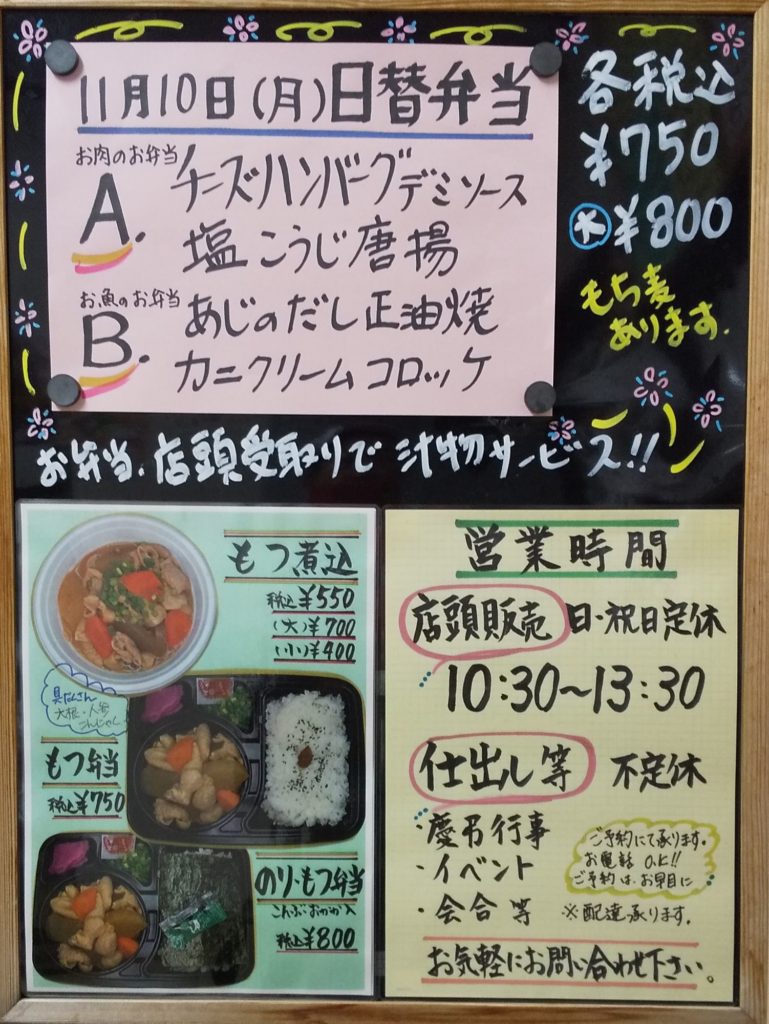 11月10日(月)日替弁当
お肉のお弁当
A.
チーズハンバーグデミソース
塩こうじ唐揚
お魚のお弁当
B.
あじのだし正油焼
カニクリームコロッケ
各税込
¥750
大¥800
もち麦
あります.
お弁当、店頭受取りで 汁物サービス!!
もつ煮込
税込¥550
(大)¥700
(小)¥400
具だくさん
大根・人参
こんにゃく
もつ弁当
税込¥750
のり・もつ弁当
こんぶ・おかか入
税込¥800
営業時間
店頭販売 日・祝日定休
10:30〜13:30
仕出し等 不定休
・慶弔行事
・イベント
・会合等
ご予約にて承ります。
お電話 O.K!!
ご予約は、お早目に
※配達承ります.
お気軽にお問い合わせ下さい。